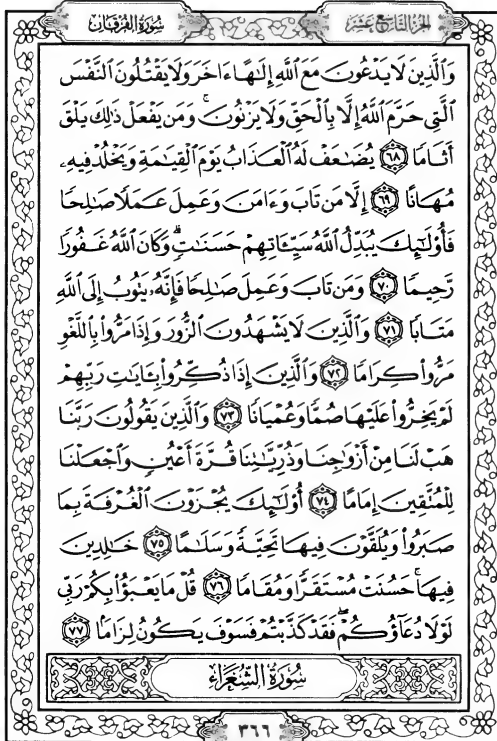 سُورَةُ الفُرْقَانِ
الجُزْءُ التَّاسِعَ عَشَرَ
وَالَّذِينَ لَا يَدْعُونَ مَعَ اللَّهِ إِلَٰهًا ءَاخَرَ وَلَا يَقْتُلُونَ النَّفْسَ
الَّتِي حَرَّمَ اللَّهُ إِلَّا بِالْحَقِّ وَلَا يَزْنُونَ ۚ وَمَن يَفْعَلْ ذَٰلِكَ يَلْقَ
أَثَامًا ٦٨ يُضَٰعَفْ لَهُ الْعَذَابُ يَوْمَ الْقِيَٰمَةِ وَيَخْلُدْ فِيهِۦ
مُهَانًا ٦٩ إِلَّا مَن تَابَ وَءَامَنَ وَعَمِلَ عَمَلًا صَٰلِحًا
فَأُو۟لَٰٓئِكَ يُبَدِّلُ اللَّهُ سَيِّـَٔاتِهِمْ حَسَنَٰتٍ ۗ وَكَانَ اللَّهُ غَفُورًا
رَّحِيمًا ٧٠ وَمَن تَابَ وَعَمِلَ صَٰلِحًا فَإِنَّهُۥ يَتُوبُ إِلَى اللَّهِ
مَتَابًا ٧١ وَالَّذِينَ لَا يَشْهَدُونَ الزُّورَ وَإِذَا مَرُّوا۟ بِاللَّغْوِ
مَرُّوا۟ كِرَامًا ٧٢ وَالَّذِينَ إِذَا ذُكِّرُوا۟ بِـَٔايَٰتِ رَبِّهِمْ
لَمْ يَخِرُّوا۟ عَلَيْهَا صُمًّا وَعُمْيَانًا ٧٣ وَالَّذِينَ يَقُولُونَ رَبَّنَا
هَبْ لَنَا مِنْ أَزْوَٰجِنَا وَذُرِّيَّٰتِنَا قُرَّةَ أَعْيُنٍ وَاجْعَلْنَا
لِلْمُتَّقِينَ إِمَامًا ٧٤ أُو۟لَٰٓئِكَ يُجْزَوْنَ الْغُرْفَةَ بِمَا
صَبَرُوا۟ وَيُلَقَّوْنَ فِيهَا تَحِيَّةً وَسَلَٰمًا ٧٥ خَٰلِدِينَ
فِيهَا ۚ حَسُنَتْ مُسْتَقَرًّا وَمُقَامًا ٧٦ قُلْ مَا يَعْبَؤُا۟ بِكُمْ رَبِّي
لَوْلَا دُعَآؤُكُمْ ۖ فَقَدْ كَذَّبْتُمْ فَسَوْفَ يَكُونُ لِزَامًۢا ٧٧
سُورَةُ الشُّعَرَاءِ
٣٦٦